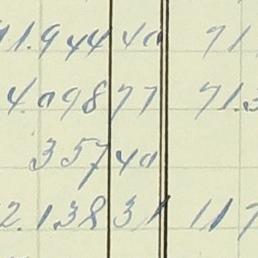 1.944 40 71
4.098 77 71.3
357 40
2.138 31 117